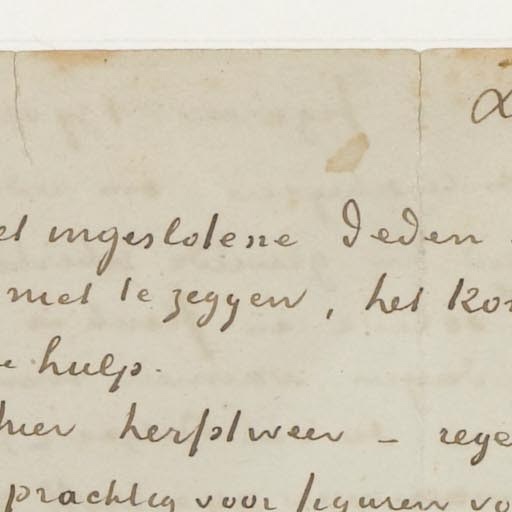 et ingeslotene heden
niet te zeggen, het ko
e hulp.
hier herfstweer – rege
prachtig voor figuren vo